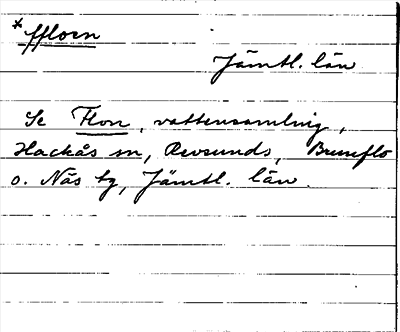 * ffloen
Jämtl. län
Se Flon, vattensamling,
Hackås sn, Revsunds, Brunflo
o. Näs tg, Jämtl. län.